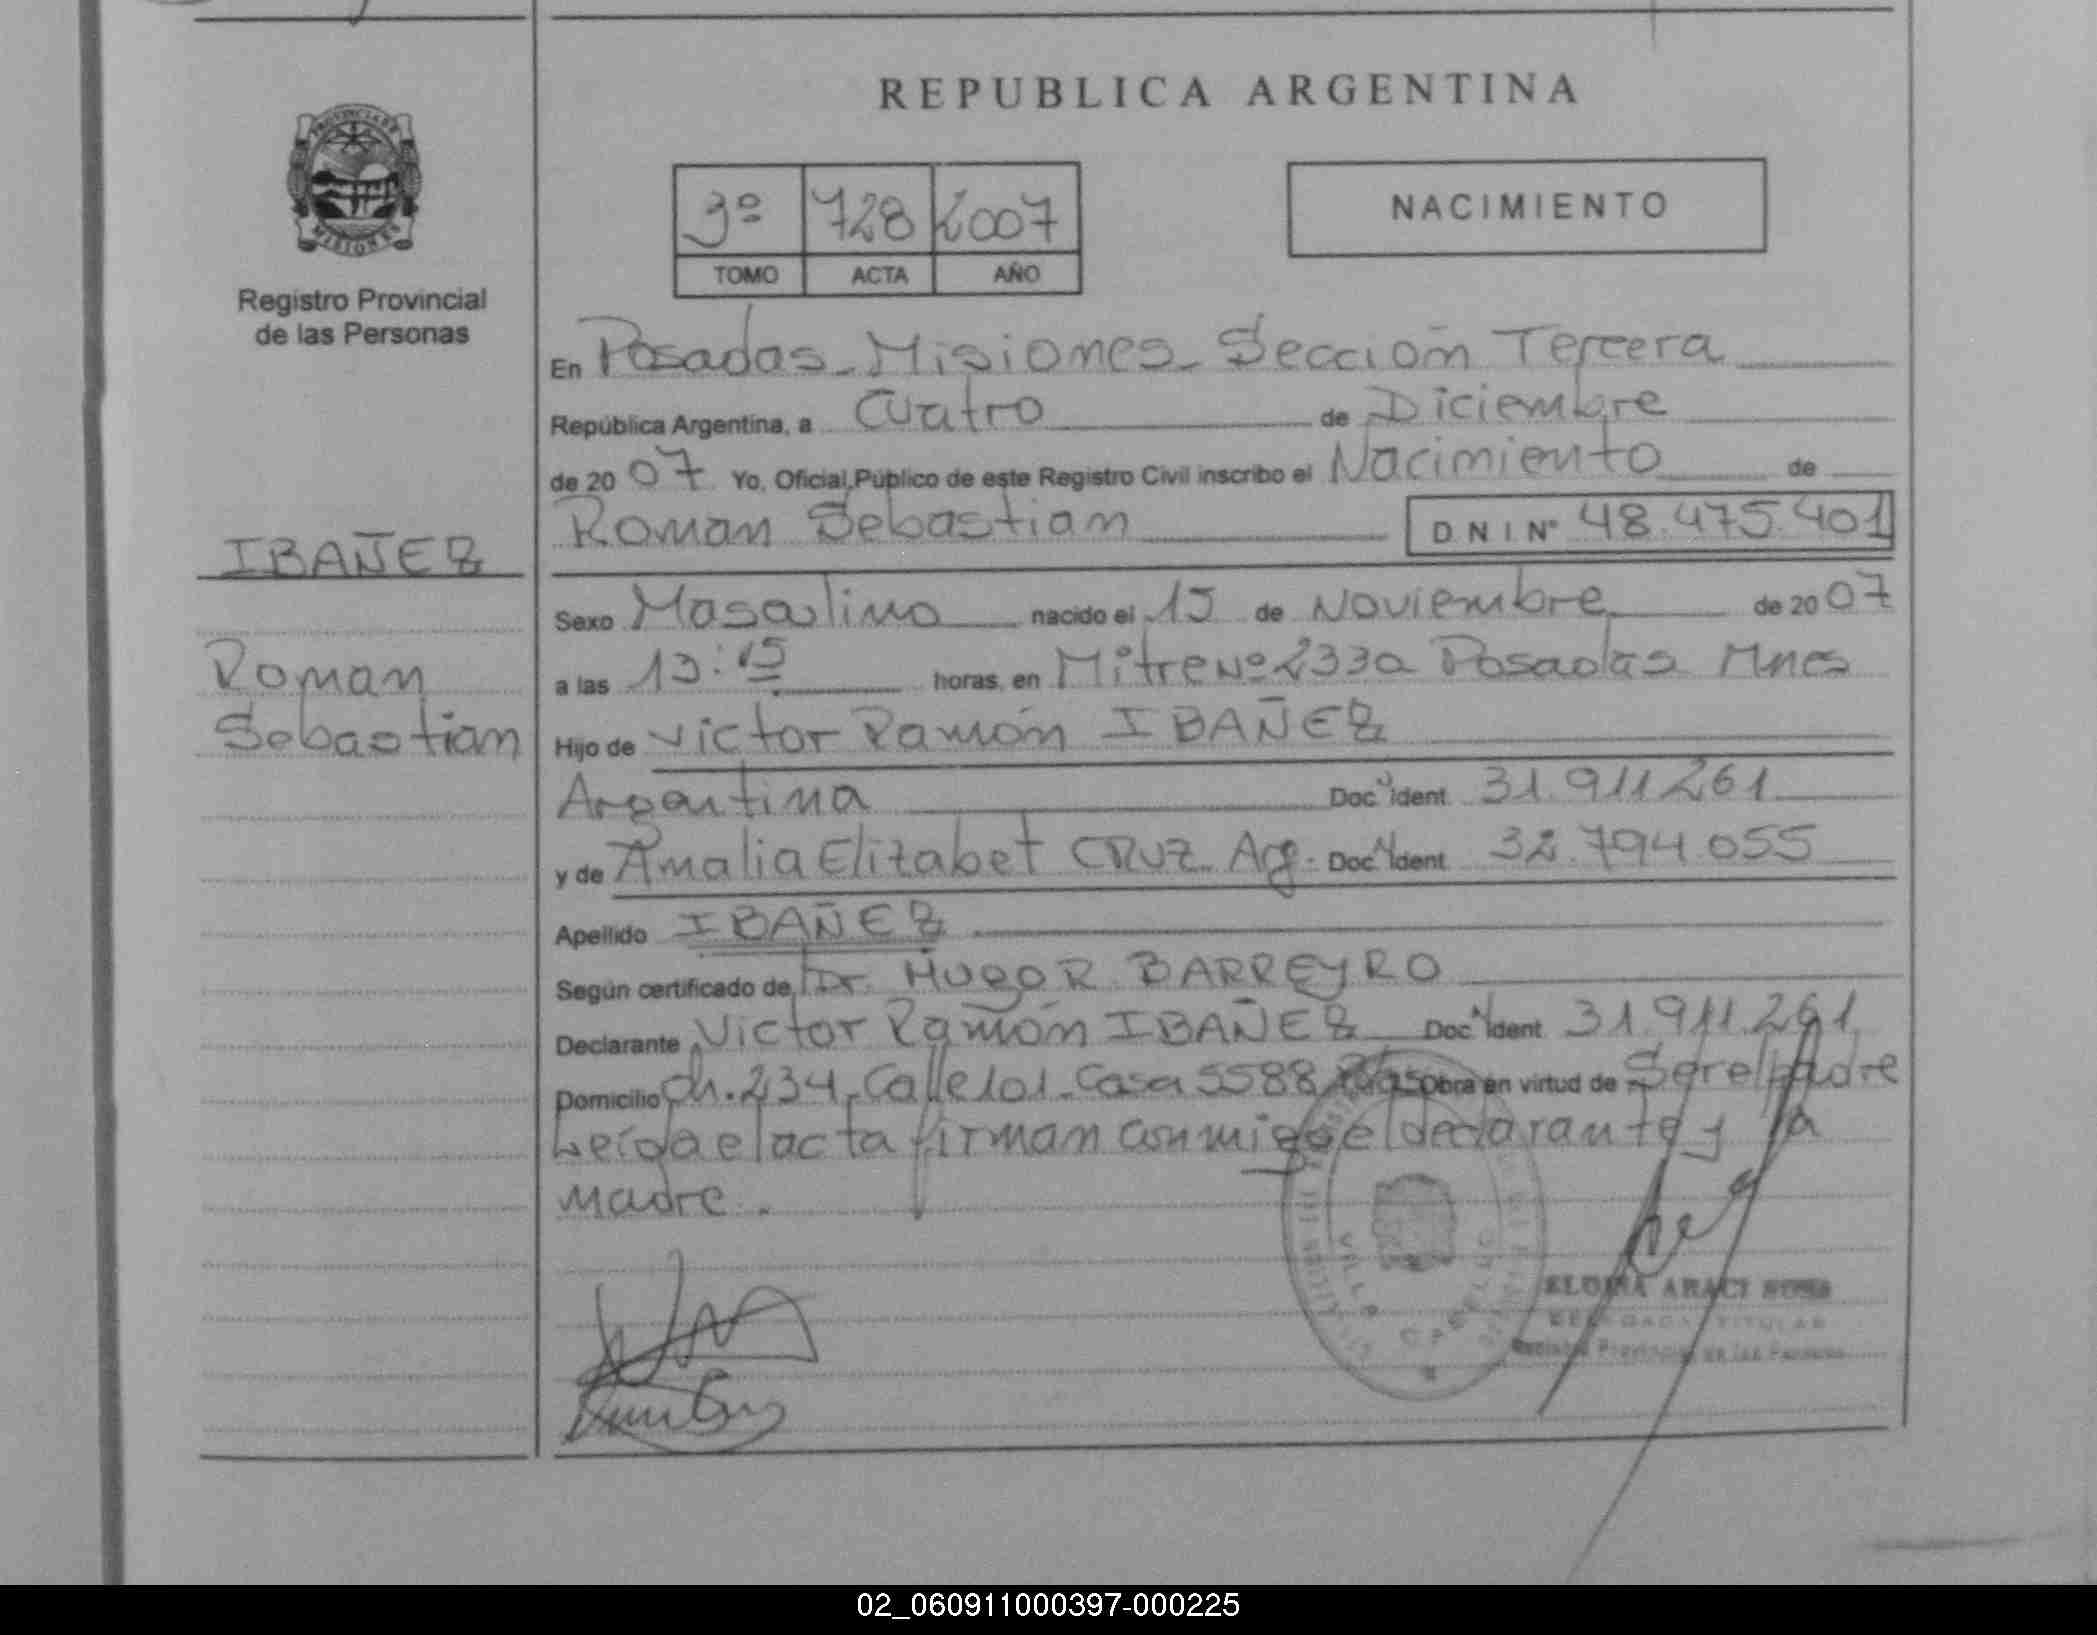 REPUBLICA ARGENTINA
PROVINCIA DE
MISIONES
Registro Provincial
de las Personas
3º 728 2007
TOMO ACTA AÑO
NACIMIENTO
En Posadas - Misiones - Sección Tercera
República Argentina, a Cuatro de Diciembre
de 2007 Yo, Oficial Público de este Registro Civil inscribo el Nacimiento de
Roman Sebastian D N I Nº 48.475.401
IBAÑEZ
Roman
Sebastian
Sexo Masculino nacido el 15 de Noviembre de 2007
a las 13:15 horas, en Mitre Nº 2330 Posadas Mnes
Hijo de Victor Ramón IBAÑEZ
Argentina Doc. Ident. 31.911.261
y de Amalia Elizabet CRUZ Arg. Doc. Ident. 32.794.055
Apellido IBAÑEZ
Según certificado de Dr. HUGO R. BARREYRO
Declarante Victor Ramón IBAÑEZ Doc. Ident. 31.911.261
Domicilio Ch. 234 - Calle 101 - Casa 5588 Obra en virtud de Ser el padre
Leída el acta firman conmigo el declarante y la
madre.
ARACI
DELEGADA TITULAR
Registro Provincial de las Personas
02_060911000397-000225